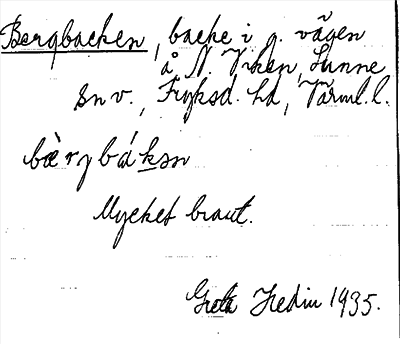 Bergbacken, backe i g. vägen
å N. Viken, Sunne
sn v., Fryksd. hd, Värml. l.
bæ̀rjbákən
Mycket brant.
Greta Hedin 1935.